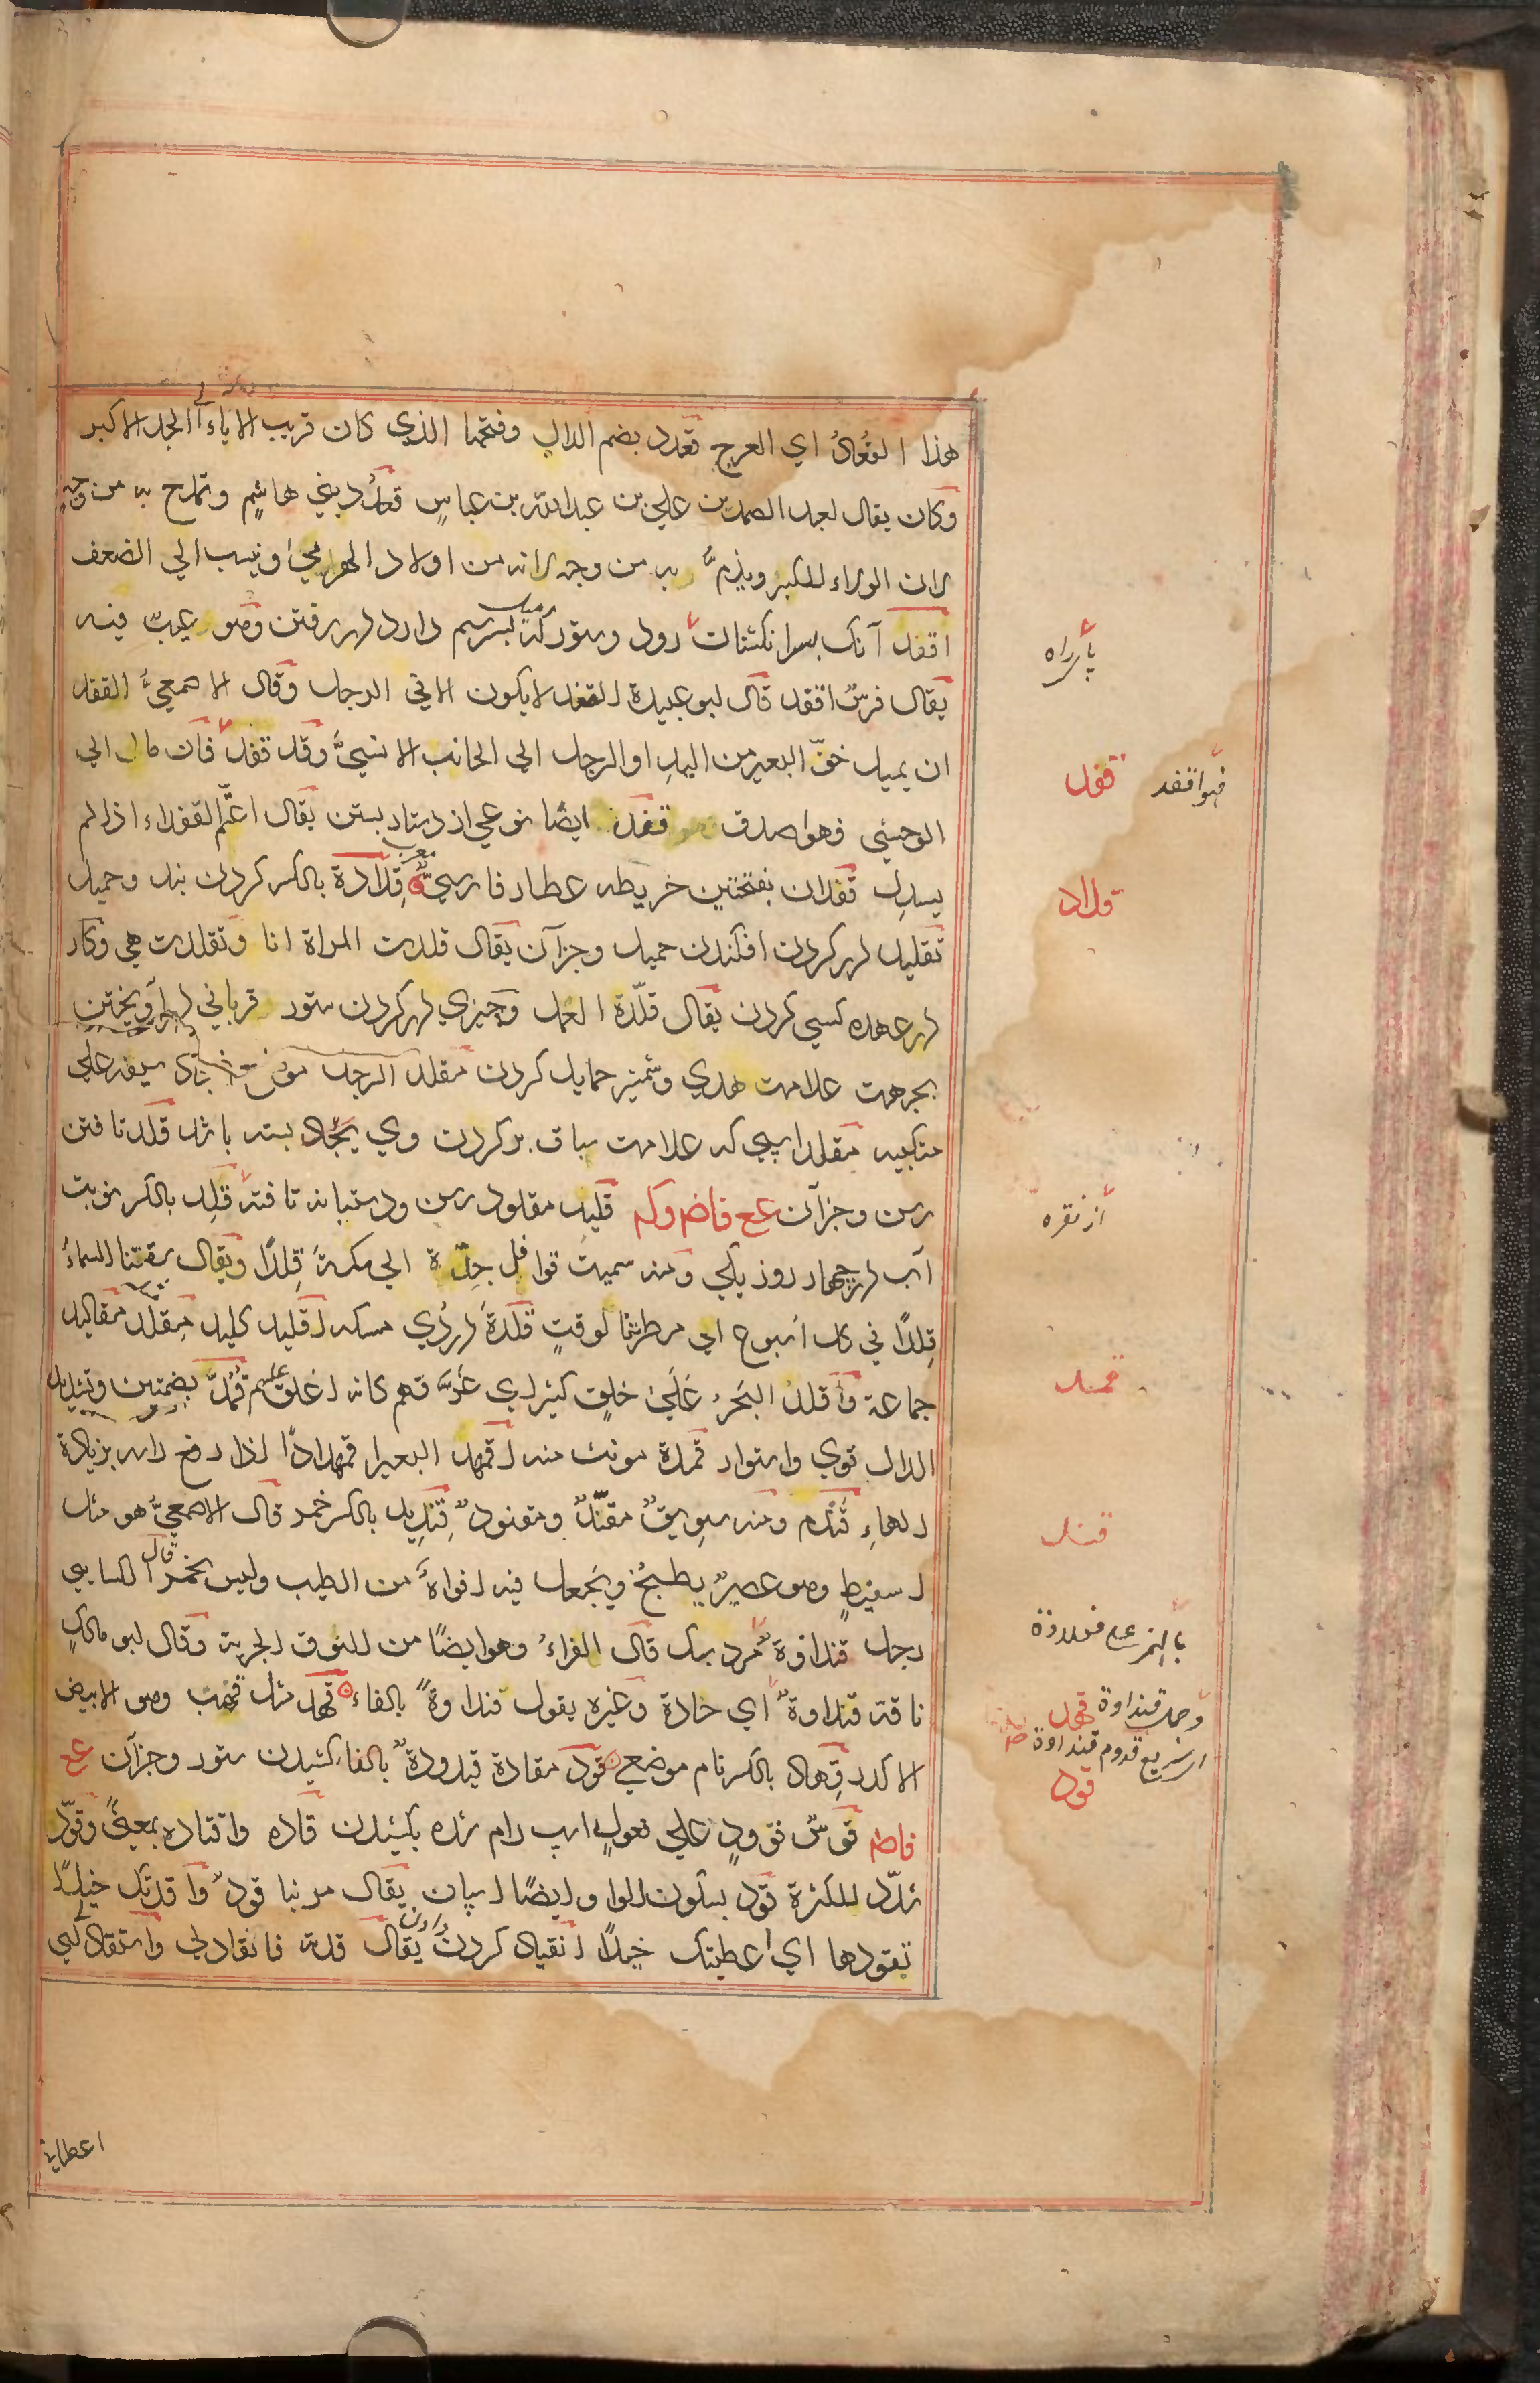 هذا القُعادُ اي العرج قعدد بضم الدال وفتحها الذي كان قريب الاباء الي الجد الاكبر
وكان يقال لعبد الصمد بن علي بن عبد الله بن عباسٍ قعدُد بني هاشمٍ وتمدح به من وجهٍ
لان الولاء للكبر ويذمُّ به من وجه لانه من اولاد الهرمي وينسب الي الضعف
اقفد آنك بسر انكشتان رود وستور كه بسر سم دارد در رفتن وهو عيبٌ فيه
يقال فرسٌ اقفد قال ابو عبيدة القفد لا يكون الا في الرجل وقال الاصمعيُّ القفد
ان يميل خفّ البعير من اليدِ او الرجل الي الجانب الانسيّ وقد قفد فان مال الي
الوحشي فهو اصدف قفد ايضًا نوعي از دستار بستن يقال اعتمّ القفداء اذا لم
يسدِل قفدان بفتحتين خريطه عطار فارسيٌّ معرب قِلادة بالكسر كردن بند وحميل
تقليد در كردن افكندن حميل وجزآن يقال قلدت المراة انا وتقلدت هي وكار
در عهده كسي كردن يقال قلّدة العمل وچيزي در كردن ستور قرباني در آويختن
بجهت علامت هدي وشمشير حمايل كردن مقلد الرجل موضع نجاد سيفه علي
منكبيه مقلد اسپي كه علامت سباق بر كردن وي بسته باشد قلد تافتن
رسن وجزآن عع فاض وكم قليد مقلود رسن ودستيانه تافته قلِد بالكسر نوبت
آب در چهار روز يكي ومنه سميت قوافل جدّة الي مكة قِلدًا ويقال سقتنا السماءُ
قِلدًا في كل اسبوع اي مطرتنا لوقتٍ قلدة دردي مسكه اقليد كليد مِقلد مقاليد
جماعة واقلد البَحرُ عَلَي خلقٍ كثير اي غرّقهم كانه اغلق عليهم قُمُدّ بضمتين وتشديد
الدال قوي واستوار قمدة مونث منه اقمهد البعير اقمهدادًا اذا رفع راسه بزيادة
الهاءِ قند م ومنه سوِيقٌ مقنّدٌ ومقنودٌ قِنديد بالكسر خمر قال الاصمعيُّ هو مثل
اسفنطٍ وهو عصيرٌ يطبخُ ويجعل فيه افواهٌ من الطيب وليس بخمر قال الكسايي
رجل قنداوة مرد سبك قال الفراءُ وهو ايضًا من النوق الجرية وقال ابو مالكٍ
ناقة قنداوةٌ اي حادة وغيره يقول فنداوةٌ بالفاء قهد مثل قهب وهو الابيض
الاكدر قِهاد بالكسر نام موضعي قود مقادة قيدودةٌ بالفا كشيدن ستور وجزآن عع
فاض فرسٌ قوودٍ علي فعولٍ اسپ رام شده بكشيدن قاده واقتاده بمعنيً وقوّد
شدّد للكثرة قود بسكون الواو ايضًا اسپان يقال مر بنا قودٌ واقدتك خيلًا
تقودها اي اعطيتك خيلًا انقياد كردن دادن يقال قدته فانقاد لي واستقاد لي
پا راه
قفد
فهو اقفد
قلاد
از نقره
قمد
قند
بالهمز علي فعلاوة
وجمل قنداوة
قهد
قدوم قنداوة
قود
اعطاني